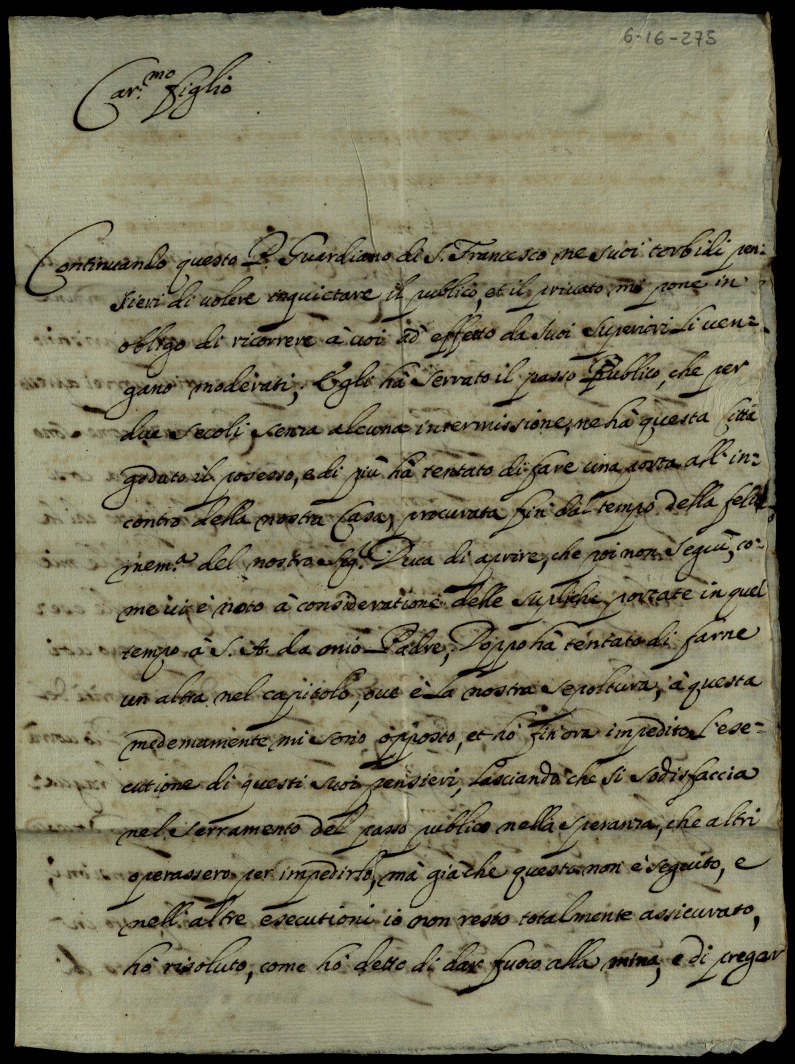 6-16-275
Car.mo figlio
Continuando questo P. Guardiano di S. Francesco ne suoi torbidi pen:
sieri di volere inquietare il publico, et il privato, mi pone in
obligo di ricorrere à voi ad effetto da suoi superiori li ven:
gano moderati; Egli hà serrato il passo Publico, che per
due secoli senza alcuna intermissione, ne hà questa Città
goduto il possesso, e di più hà tentato di fare una porta all'in:
contro della nostra Casa, procurata fin dal tempo della felice
mem.a del nostro Sig.r Duca di aprire, che poi non seguì, co:
me vi è noto à consideratione delle supliche portate in quel
tempo à S. A. da mio Padre; Doppo hà tentato di farne
un altra nel capitolo, ove è la nostra sepoltura; à questa
medemamente mi sono opposto, et hò fin'ora impedito l'ese:
cutione di questi suoi pensieri, lasciando che si sodisfaccia
nel serramento del passo publico nella speranza, che altri
operassero per impedirlo, mà già che questo non è seguito, e
nell'altre esecutioni io non resto totalmente assicurato,
hò risoluto, come hò detto di dar fuoco alla mina, e di pregar